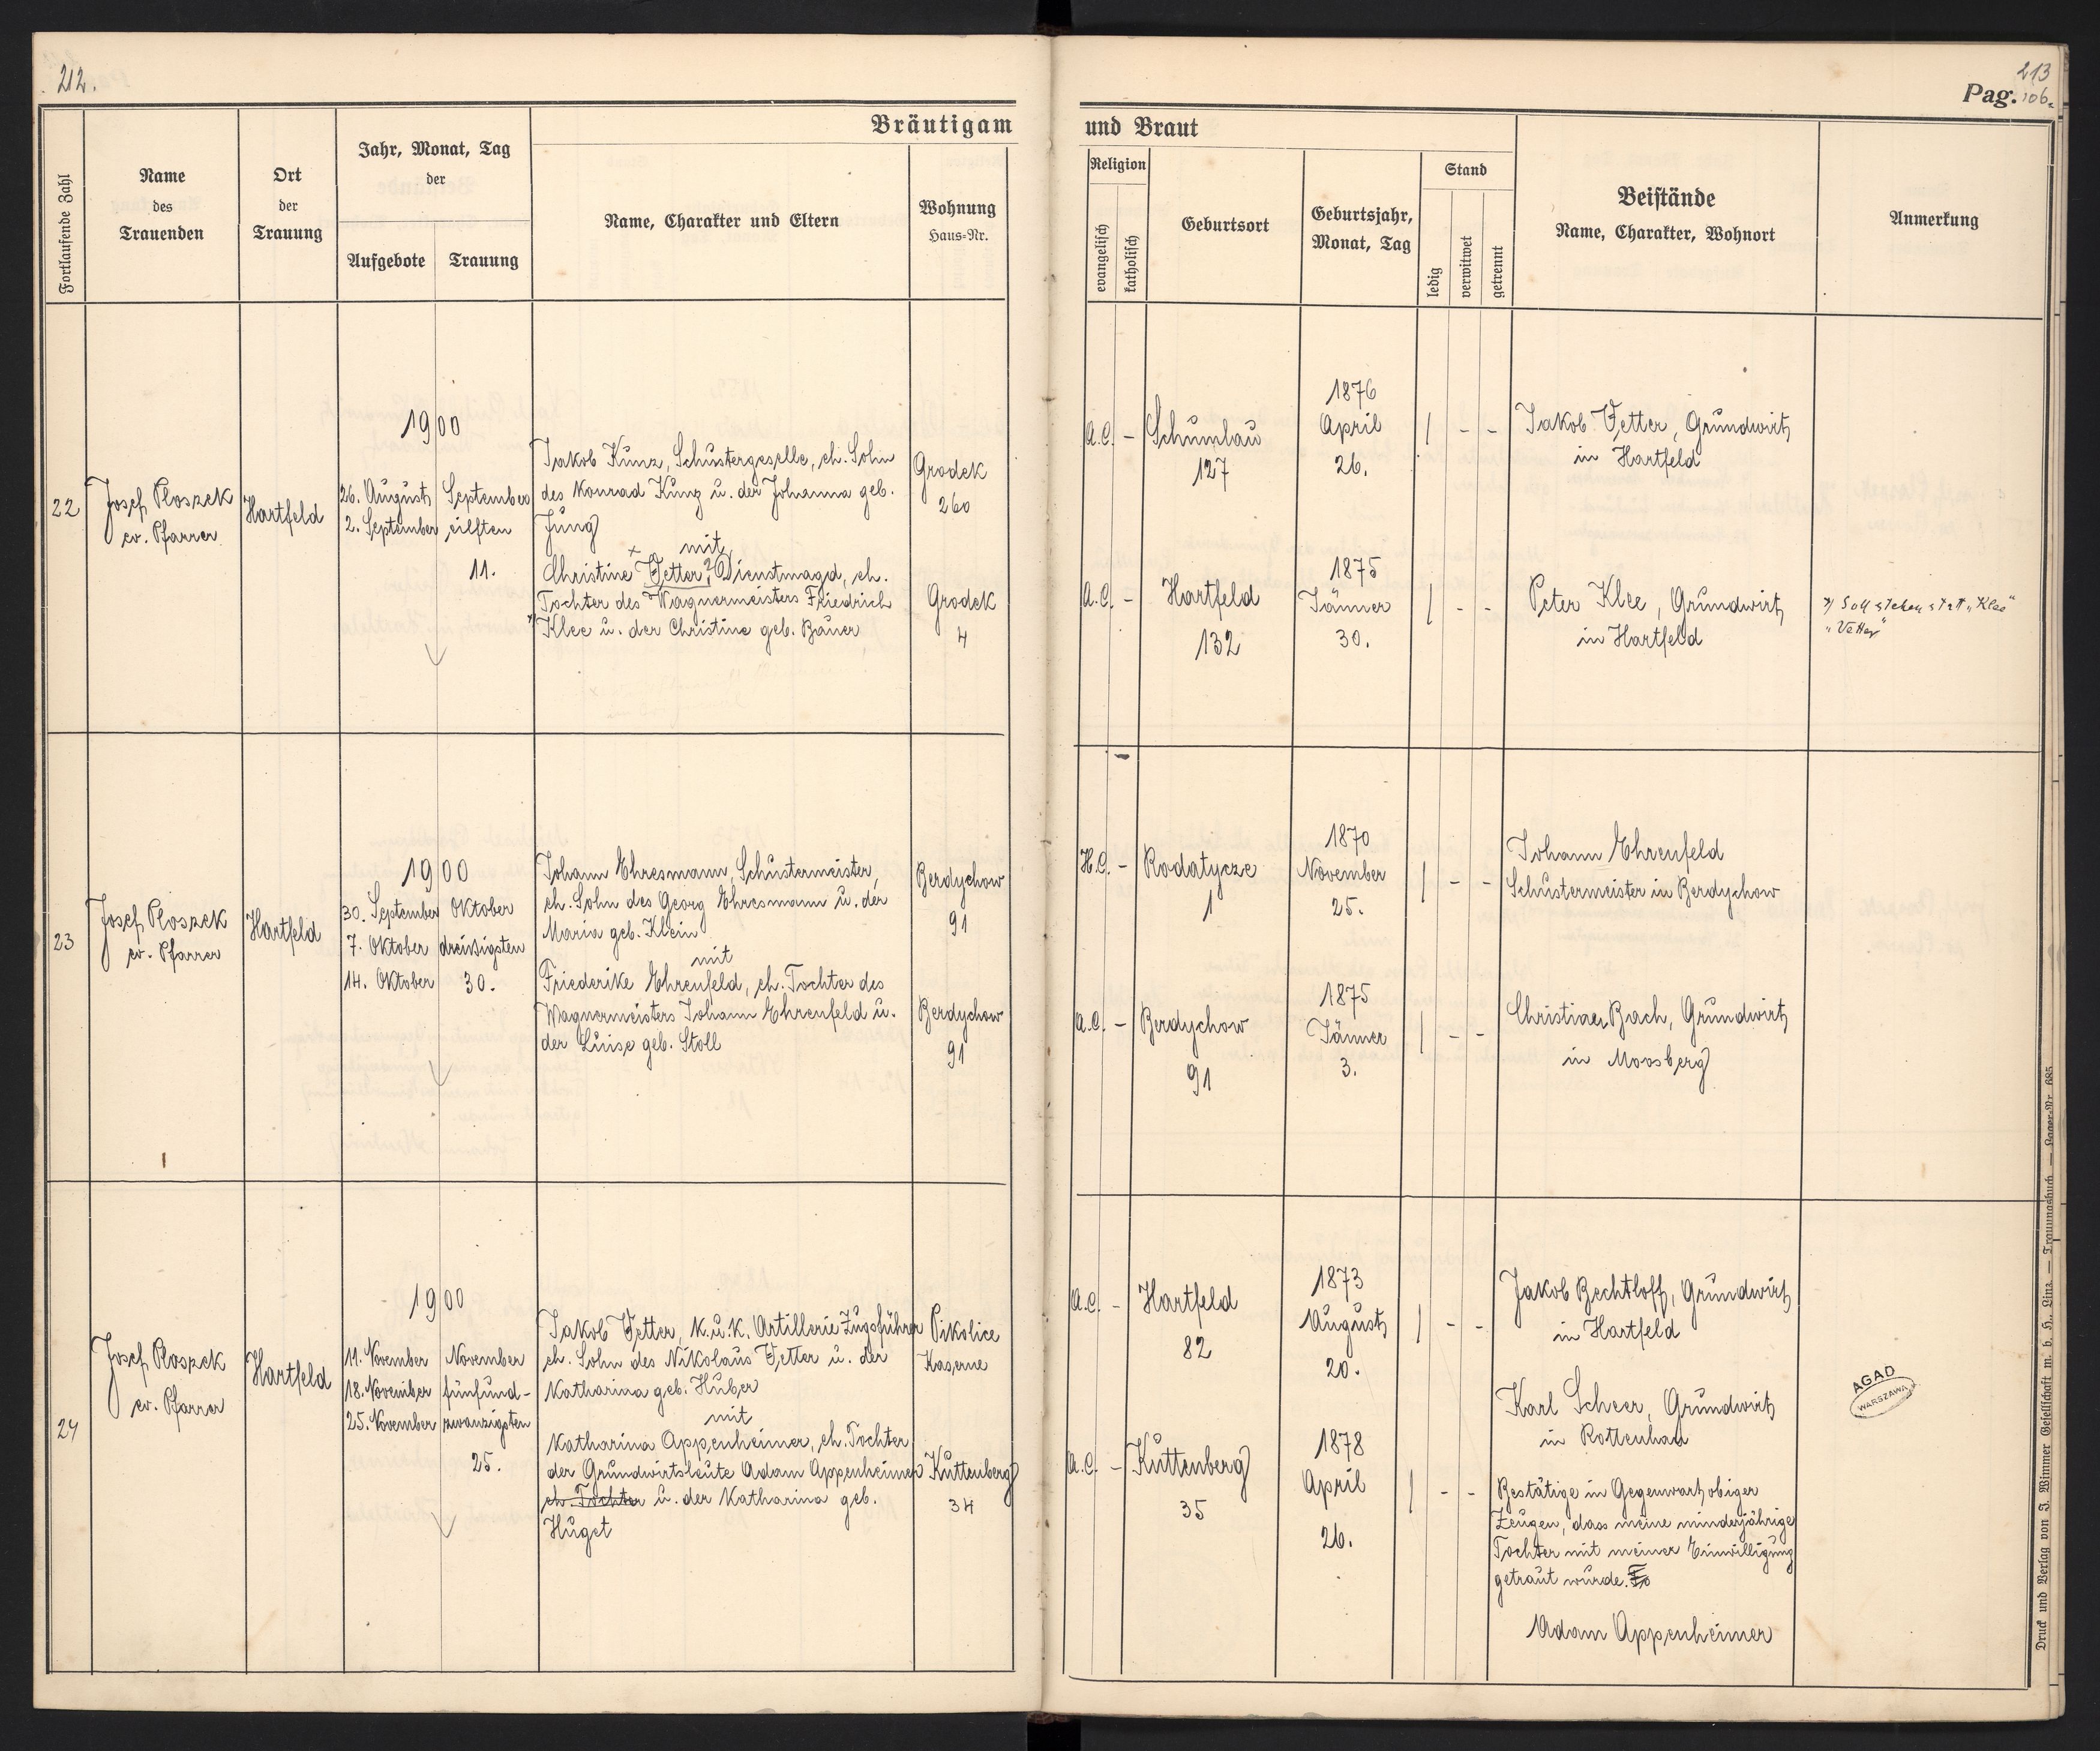 212.
213
Pag. 106.
Bräutigam
und Braut
Fortlaufende Zahl
Name
des
Trauenden
Ort
der
Trauung
Jahr, Monat, Tag
der
Aufgebote
Trauung
Name, Charakter und Eltern
Wohnung
Haus-Nr.
Religion
evangelisch
katholisch
Geburtsort
Geburtsjahr,
Monat, Tag
Stand
ledig
verwitwet
getrennt
Beistände
Name, Charakter, Wohnort
Anmerkung
22
Josef Ploszek
ev. Pfarrer
Hartfeld
1900
26. August
2. September
September
eilften
11.
Jakob Kunz, Schustergeselle, eh. Sohn
des Konrad Kunz u. der Johanna geb.
Jung
mit
Christine Vetter, Dienstmagd, eh.
Tochter des Wagnermeisters Friedrich
Klee u. der Christine geb. Bauer
Grodek
260
Grodek
4
A.C. -
Schumlau
127
1876
April
26.
| - -
Jakob Vetter, Grundwirt
in Hartfeld
A.C. -
Hartfeld
132
1875
Jänner
30.
| - -
Peter Klee, Grundwirt
in Hartfeld
*/ Soll stehen statt „Klee“
„Vetter“
23
Josef Ploszek
ev. Pfarrer
Hartfeld
1900
30. September
7. Oktober
14. Oktober
Oktober
dreißigsten
30.
Johann Ehresmann, Schustermeister,
eh. Sohn des Georg Ehresmann u. der
Maria geb. Klein
mit
Friederike Ehrenfeld, eh. Tochter des
Wagnermeisters Johann Ehrenfeld u.
der Luise geb. Stoll
Berdychow
91
Berdychow
91
H.C. -
Rodatycze
1
1870
November
25.
| - -
Johann Ehrenfeld
Schustermeister in Berdychow
A.C. -
Berdychow
91
1875
Jänner
3.
| - -
Christian Bach, Grundwirt
in Moosberg
24
Josef Ploszek
ev. Pfarrer
Hartfeld
1900
11. November
18. November
25. November
November
fünfund-
zwanzigsten
25.
Jakob Vetter, K.u.K. Artillerie Zugsführer
eh. Sohn des Nikolaus Vetter u. der
Katharina geb. Huber
mit
Katharina Appenheimer, eh. Tochter
der Grundwirtsleute Adam Appenheimer
eh. Tochter u. der Katharina geb.
Huget
Pikolice
Kaserne
Kuttenberg
34
A.C. -
Hartfeld
82
1873
August
20.
| - -
Jakob Bechtloff, Grundwirt
in Hartfeld
A.C. -
Kuttenberg
35
1878
April
26.
| - -
Karl Scheer, Grundwirt
in Rottenhan
Bestätige in Gegenwart obiger
Zeugen, dass meine minderjährige
Tochter mit meiner Einwilligung
getraut wurde.
Adam Appenheimer
AGAD
WARSZAWA
Druck und Verlag von J. Wimmer Gesellschaft m. b. H., Linz. — Trauungsbuch — Lager-Nr. 685